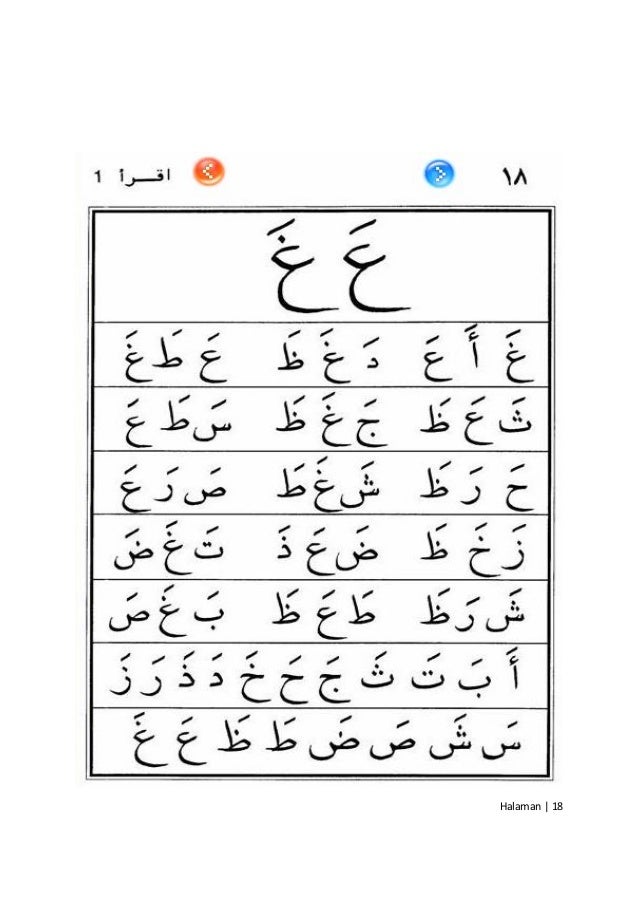 ١٨ اقـــرأ 1
عَ غَ
غَ أَ عَ دَ غَ ظَ عَ طَ غَ
ثَ عَ ظَ جَ غَ ظَ سَ طَ عَ
حَ رَ ظَ شَ غَ طَ صَ رَ عَ
زَ خَ ظَ ضَ عَ ذَ تَ غَ ضَ
شَ رَ ظَ طَ عَ ظَ بَ غَ صَ
أَ بَ تَ ثَ جَ حَ خَ دَ ذَ رَ زَ
سَ شَ صَ ضَ طَ ظَ عَ غَ
Halaman | 18